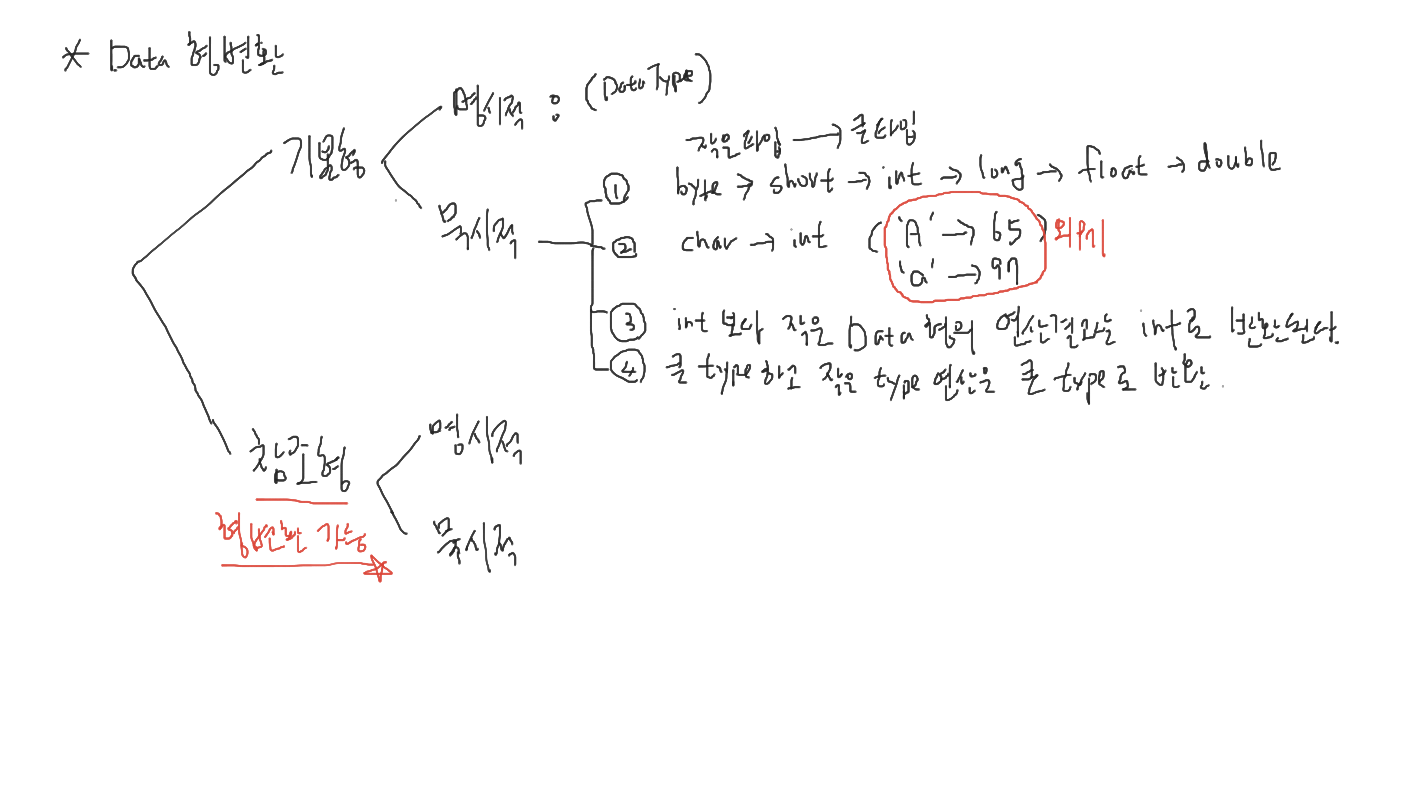 * Data 형변환
기본형
명시적 : (Data Type)
묵시적
작은타입 → 큰타입
① byte → short → int → long → float → double
② char → int ( 'A' → 65 ) 외우기
'a' → 97
③ int 보다 작은 Data 형의 연산결과는 int로 반환된다.
④ 큰 type 하고 작은 type 연산은 큰 type로 반환.
참조형
형변환 가능 ☆
명시적
묵시적